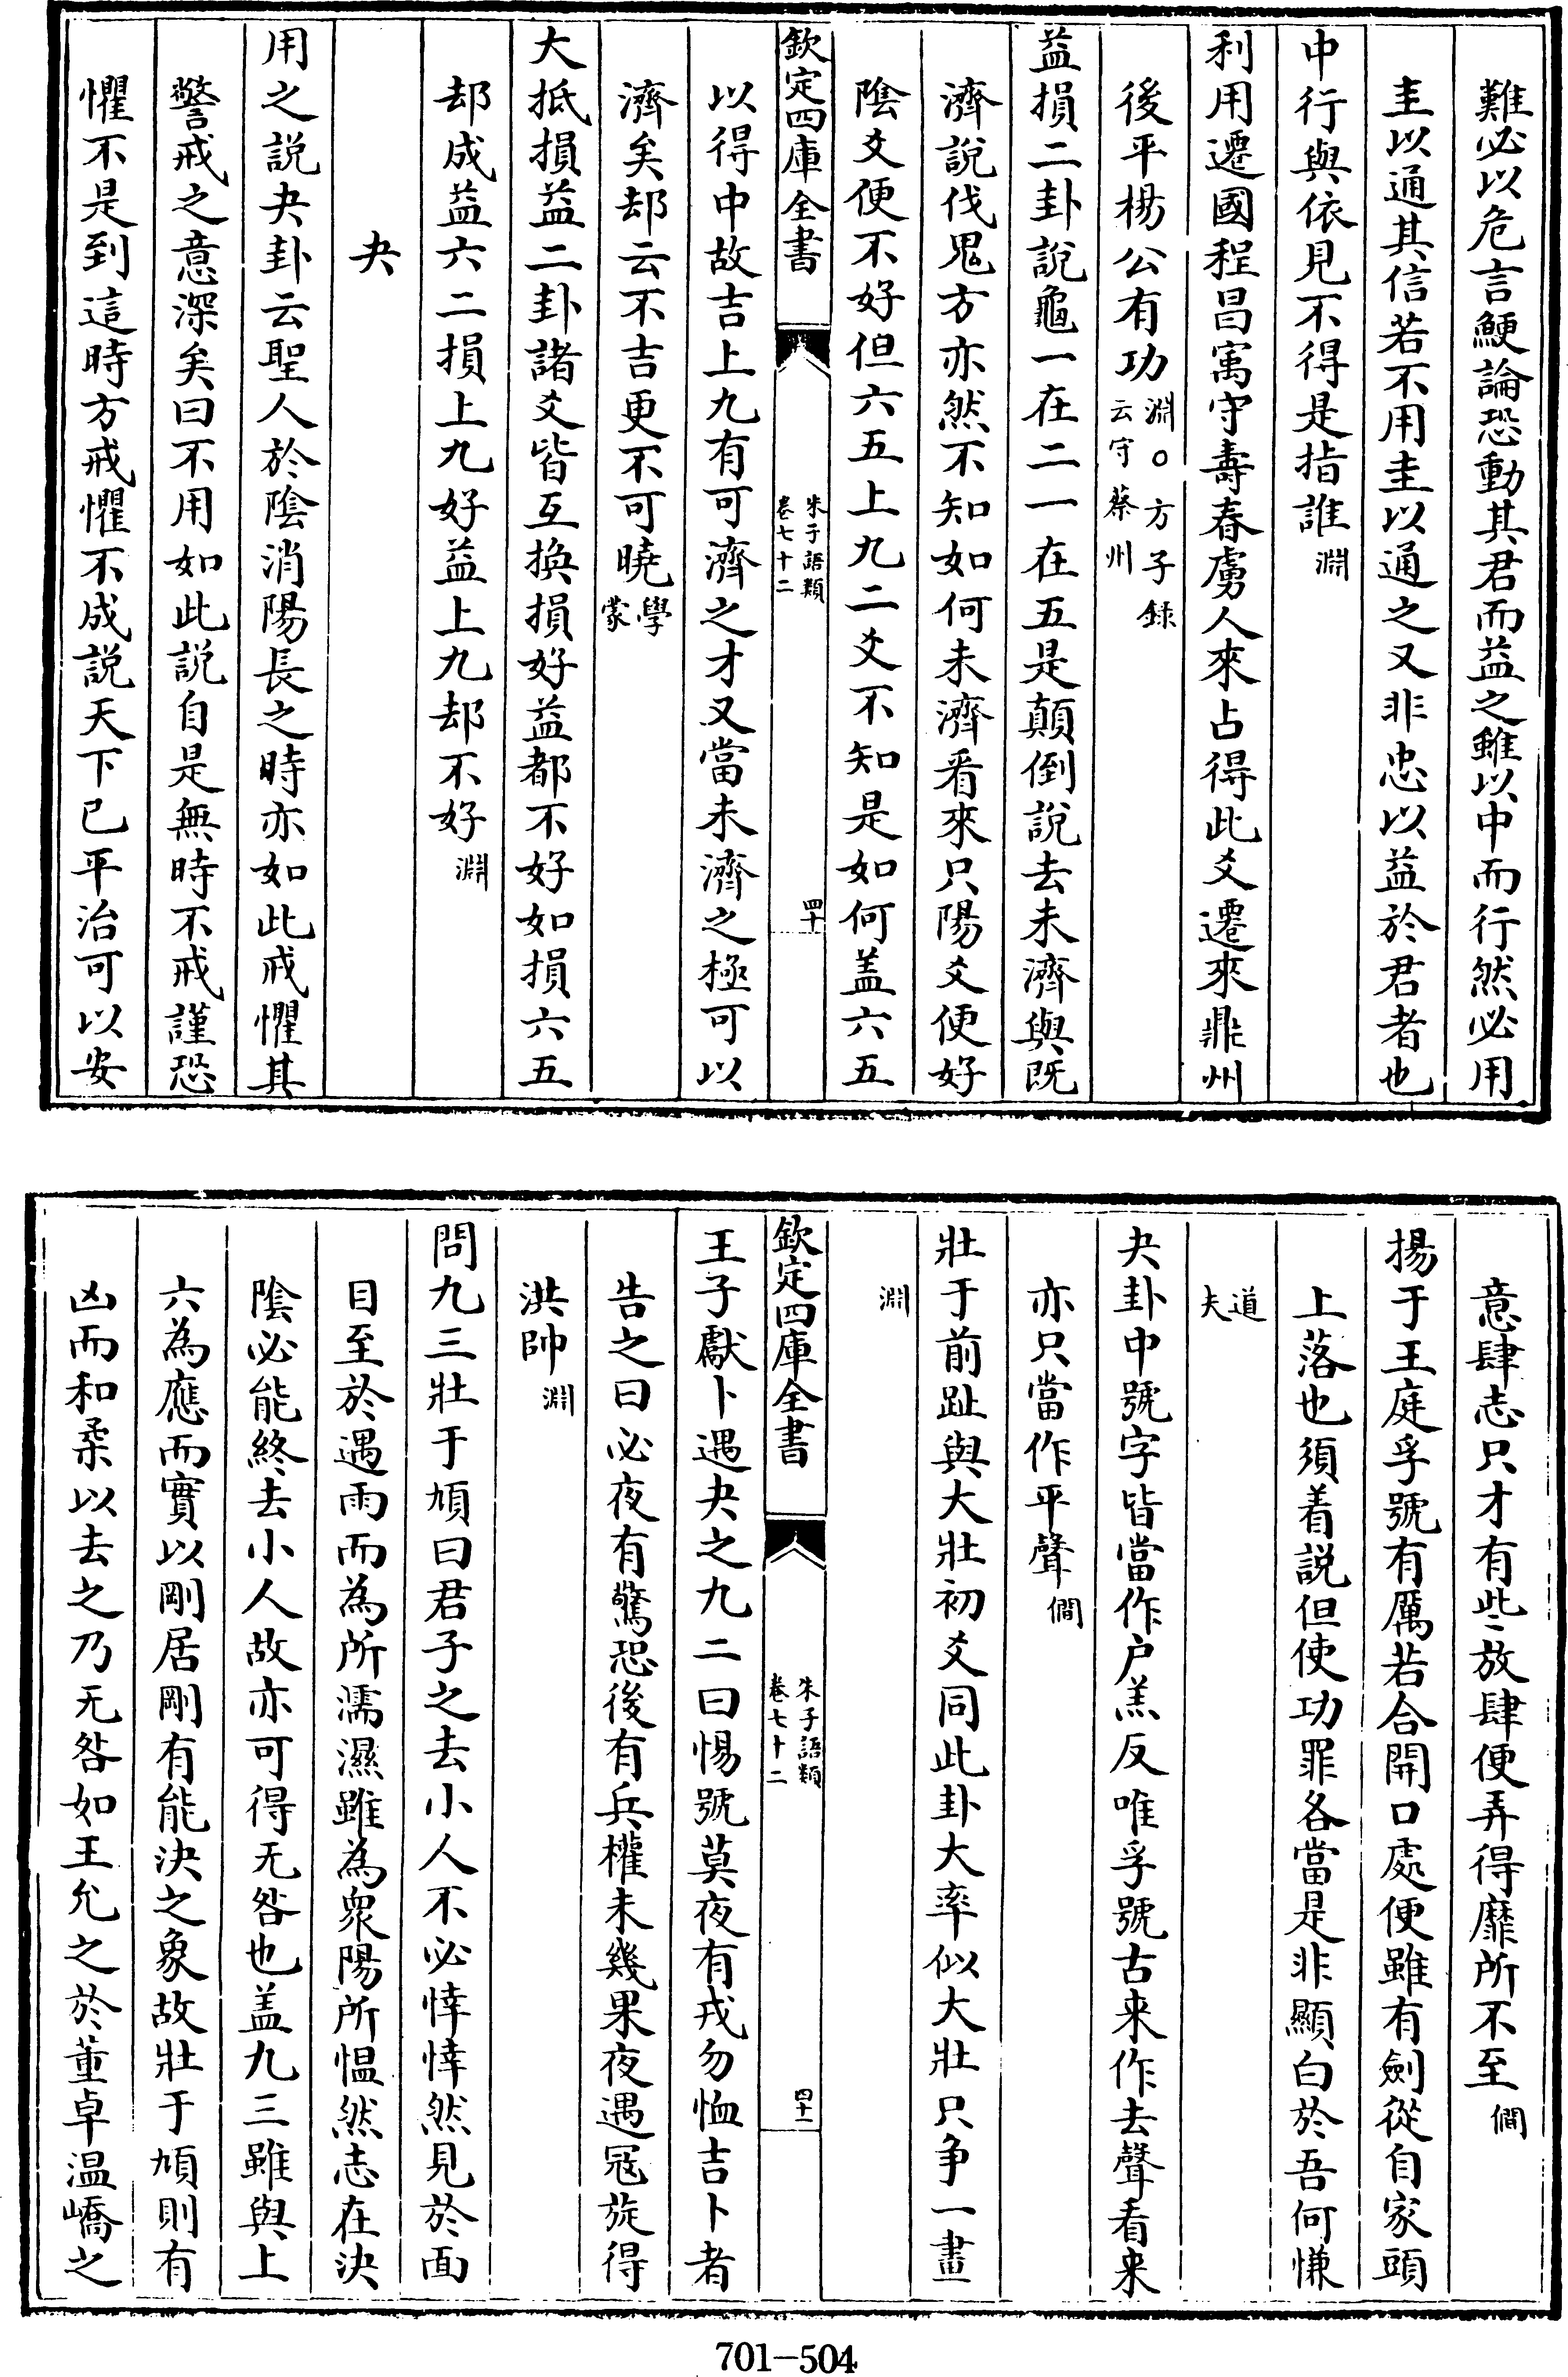 難必以危言鯁論恐動其君而益之雖以中而行然必用
圭以通其信若不用圭以通之又非忠以益於君者也
中行與依見不得是指誰淵
利用遷國程昌寓守壽春虜人來占得此爻遷來鼎州
後平楊公有功淵○方子錄云守蔡州
益損二卦説龜一在二一在五是顛倒説去未濟與既
濟說伐鬼方亦然不知如何未濟看來只陽爻便好
陰爻便不好但六五上九二爻不知是如何盖六五
欽定四庫全書
朱子語類
卷七十二
四十
以得中故吉上九有可濟之才又當未濟之極可以
濟矣却云不吉更不可曉學蒙
大抵損益二卦諸爻皆互換損好益都不好如損六五
却成益六二損上九好益上九却不好淵
夬
用之説夬卦云聖人於陰消陽長之時亦如此戒懼其
警戒之意深矣曰不用如此説自是無時不戒謹恐
懼不是到這時方戒懼不成説天下已平治可以安
意肆志只才有些放肆便弄得靡所不至僩
揚于王庭孚號有厲若合開口處便雖有劍從自家頭
上落也須着説但使功罪各當是非顯白於吾何慊
道夫
夬卦中號字皆當作户羔反唯孚號古来作去聲看来
亦只當作平聲僩
壯于前趾與大壯初爻同此卦大率似大壯只争一畫
淵
欽定四庫全書
朱子語類
卷七十二
四十一
王子獻卜遇夬之九二曰惕號莫夜有戎勿恤吉卜者
告之曰必夜有驚恐後有兵權未幾果夜遇冦旋得
洪帥淵
問九三壯于頄曰君子之去小人不必悻悻然見於面
目至於遇雨而為所濡濕雖為衆陽所愠然志在決
陰必能終去小人故亦可得无咎也盖九三雖與上
六為應而實以剛居剛有能決之象故壯于頄則有
凶而和柔以去之乃无咎如王允之於董卓温嶠之
701-504